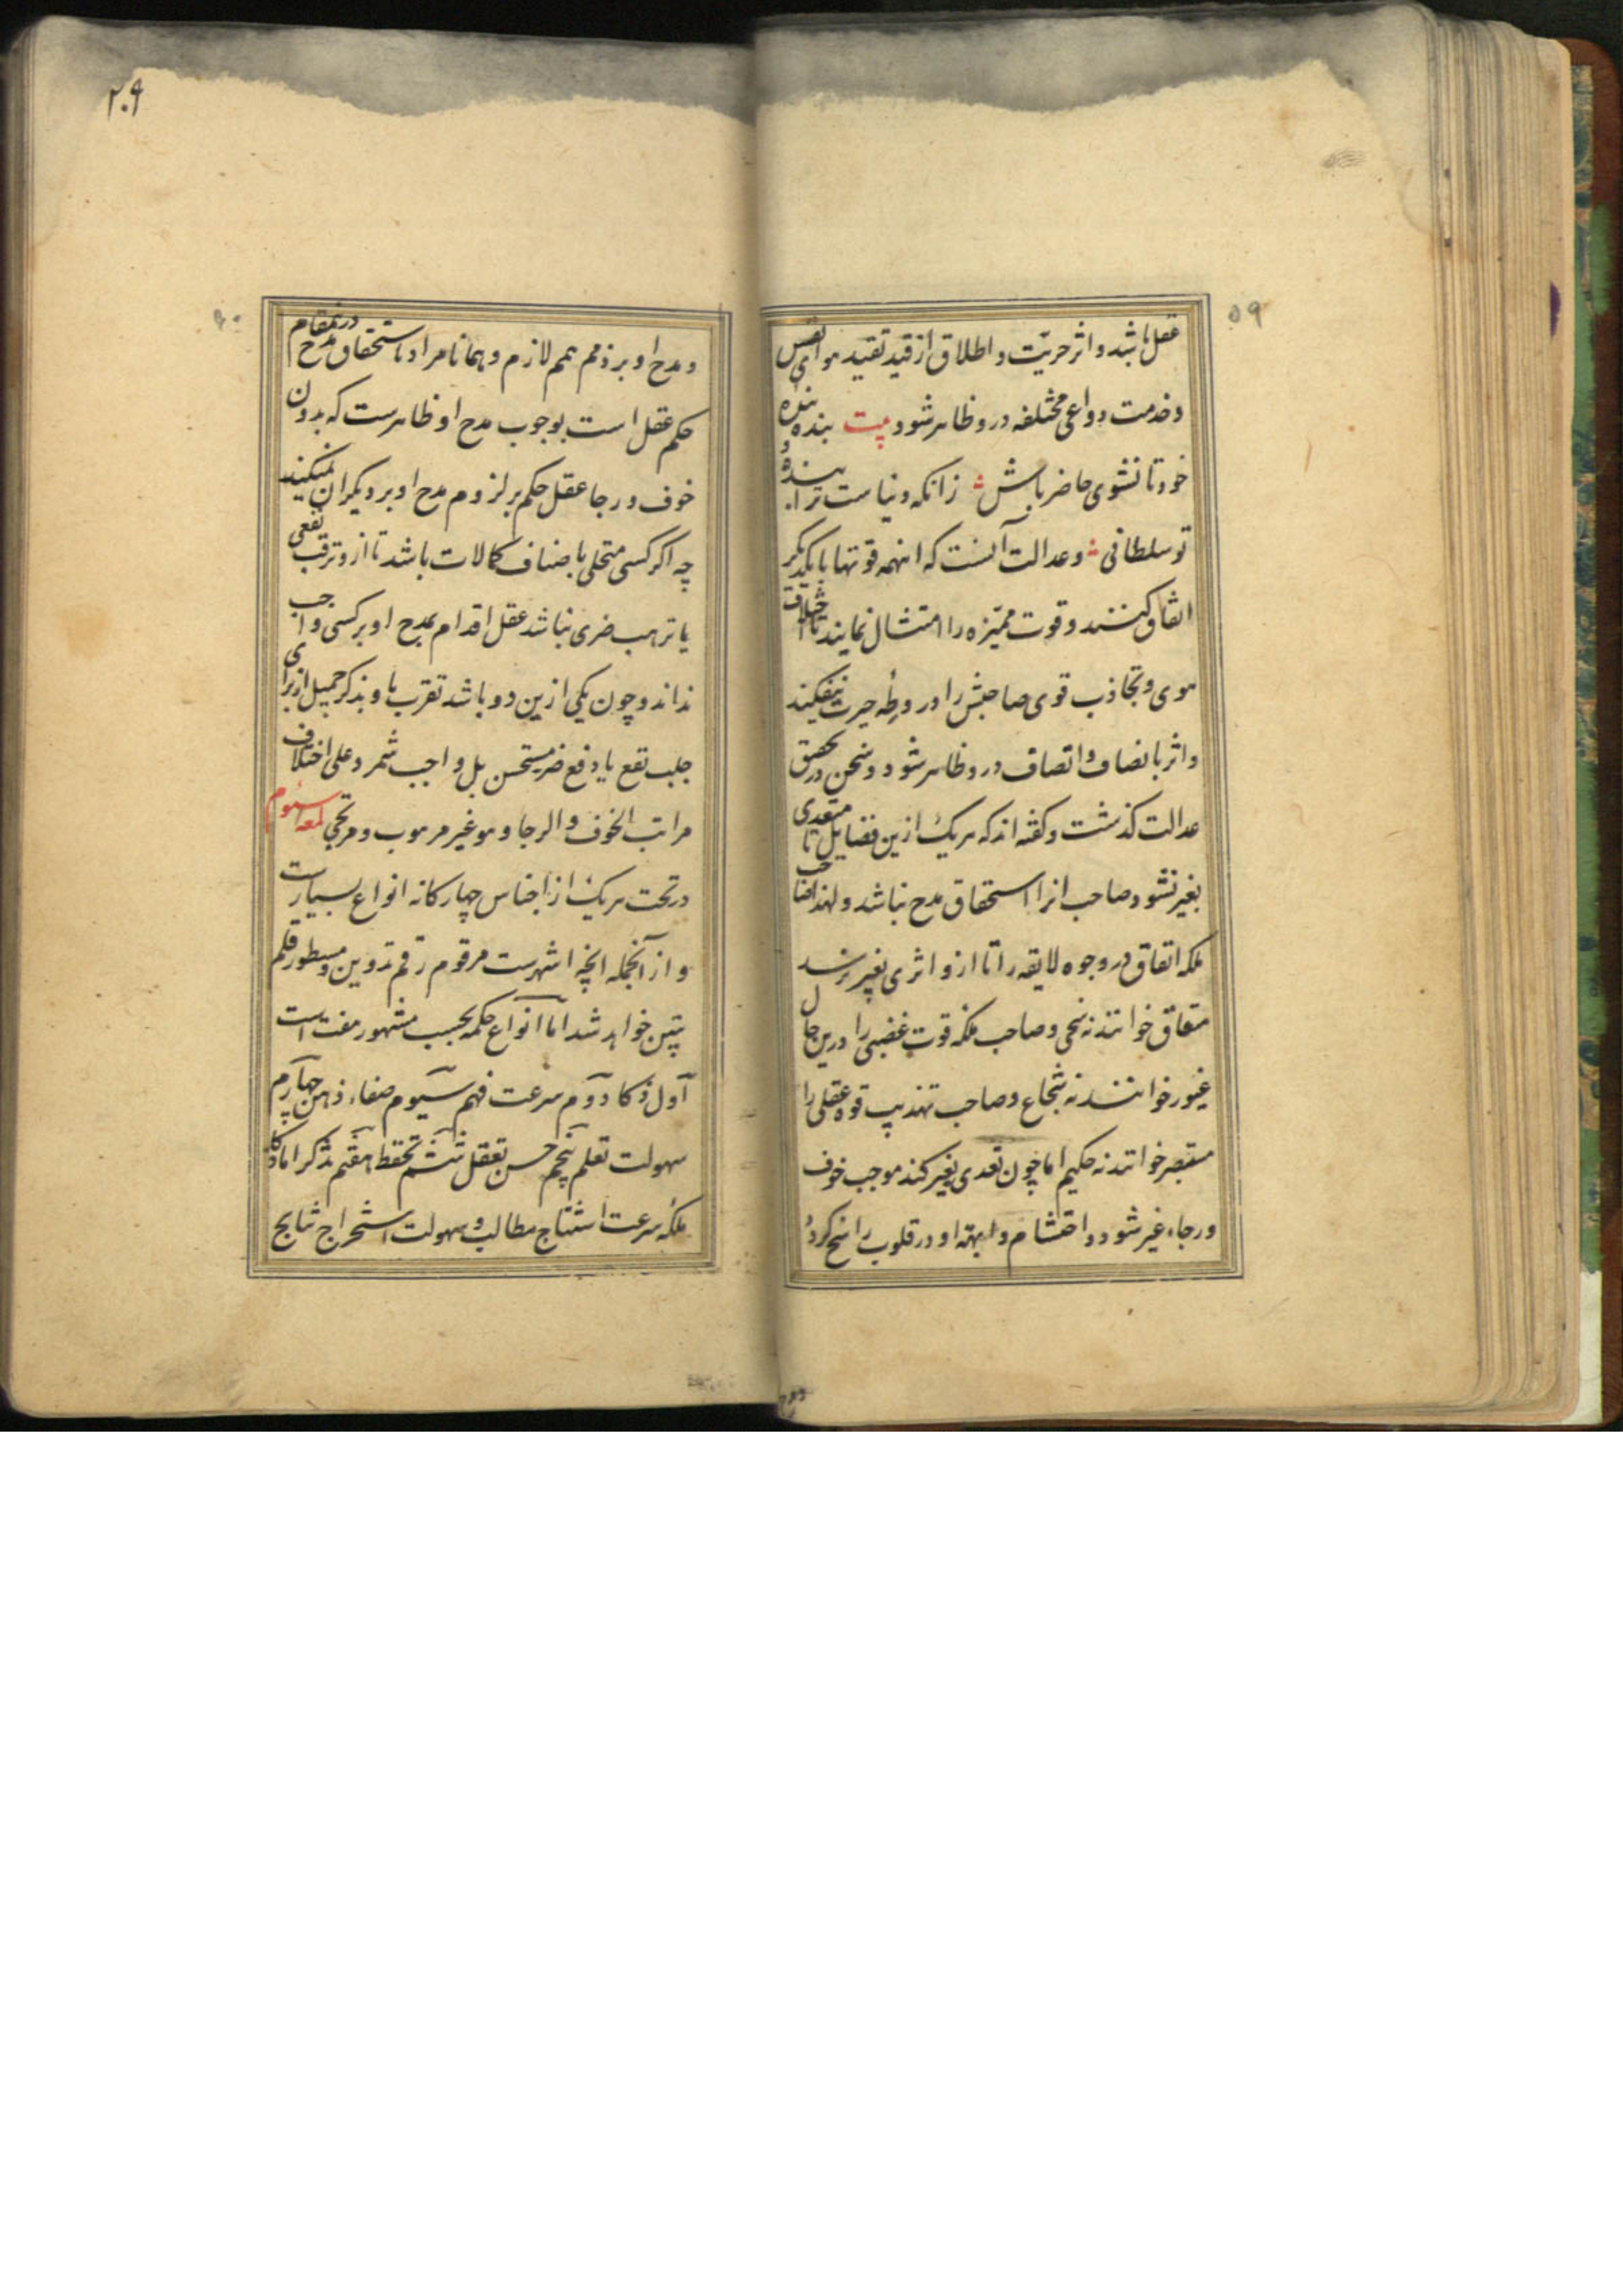 ۵۹
عقل باشد و اثر حریّت و اطلاق از قید تقید هوای نفس
و خدمت دواعی مختلفه در و ظاهر شود بیت بنده بندهٔ
خود تا نشوی حاضر باش زانکه دنیاست ترا بنده و
تو سلطانی و عدالت آنست که اینهمه قوتها با یکدیکر
اتفاق کنند و قوت ممیّزه را امتثال نمایند تا اختلاف
هوی و تجاذب قوی صاحبش را در ورطهٔ حیرت نیفکند
و اثر بانصاف و اتصاف در و ظاهر شود و سخن در تحقیق
عدالت کذشت و کفته اند که هر یک از این فضایل تا متعدی
بغیر نشود صاحب انرا استحقاق مدح نباشد و لهذا صاحب
ملکه اتفاق در وجوه لایقه را تا ازو اثری بغیر نرسد
متفاق خوانند نه سخی و صاحب ملکه قوت غضبی را درین حال
غیور خوانند نه شجاع و صاحب تهذیب قوه عقلی را
مستبصر خوانند نه حکیم اما چون تعدی بغیر کند موجب خوف
و رجاء غیر شود و احتشام و ابهته او در قلوب راسخ کردد
۲۰۹
۶۰
و مدح او بر ذمم همم لازم و همانا مراد باستحقاق مدح درینمقام
حکم عقل است بوجوب مدح او ظاهرست که بدون
خوف و رجا عقل حکم بر لزوم مدح او بر دیکران نمیکند
چه اکر کسی متحلی باصناف کمالات باشد تا ازو ترقب نفعی
یا ترهب ضری نباشد عقل اقدام بمدح او بر کسی واجب
نداند و چون یکی ازین دو باشد تقرب باو بذکر جمیل از برای
جلب نفع یا دفع ضر مستحسن بل واجب شمرد و علی اختلاف
مراتب الخوف و الرجا و هو غیر مرهوب و مرتجی لمعه سیوم
در تحت هر یک از اجناس چهارکانه انواع بسیارست
و از آنجمله انچه اشهرست مرقوم رقم تدوین و مسطور قلم
تبیین خواهد شد اما انواع حکمه بحسب مشهور هفت است
اول ذکا دوم سرعت فهم سیوم صفاء ذهن چهارم
سهولت تعلم پنجم حسن تعقل ششم تحفظ هفتم تذکر اما ذکا
ملکه سرعت استنتاج مطالب و سهولت استخراج نتایج